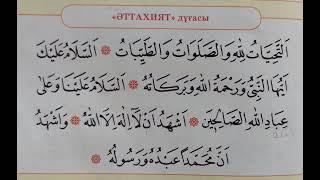 «ӘТТАХИЯТ» дұғасы
اَلتَّحِيَّاتُ لِلّٰهِ وَالصَّلَوَاتُ وَالطَّيِّبَاتُ ❋ اَلسَّلَامُ عَلَيْكَ
اَيُّهَا النَّبِىُّ وَرَحْمَةُ اللّٰهِ وَبَرَكَاتُهُ ❋ اَلسَّلَامُ عَلَيْنَا وَعَلٰى
عِبَادِ اللّٰهِ الصَّالِحِينَ ❋ اَشْهَدُ اَنْ لَٓا اِلٰهَ اِلَّا اللّٰهُ ❋ وَاَشْهَدُ
اَنَّ مُحَمَّدًا عَبْدُهُ وَرَسُولُهُ ❋